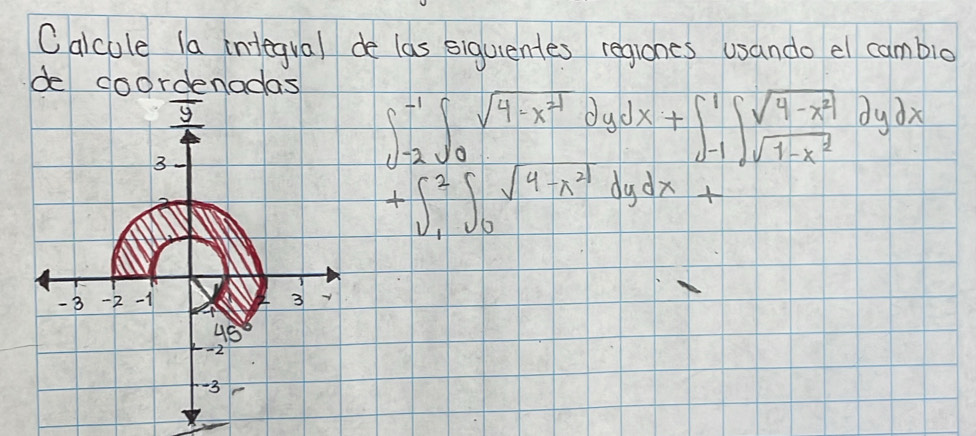 Calcule la integral de las siguientes regiones usando el cambio
de coordenadas
y
∫_{-2}^{-1} ∫_0^{√(4-x²)} dydx + ∫_{-1}^{1} ∫_{√(1-x²)}^{√(4-x²)} dydx
+ ∫_1^2 ∫_0^{√(4-x²)} dydx +
3
2
-3 -2 -1 1 2 3
-1
45°
-2
-3